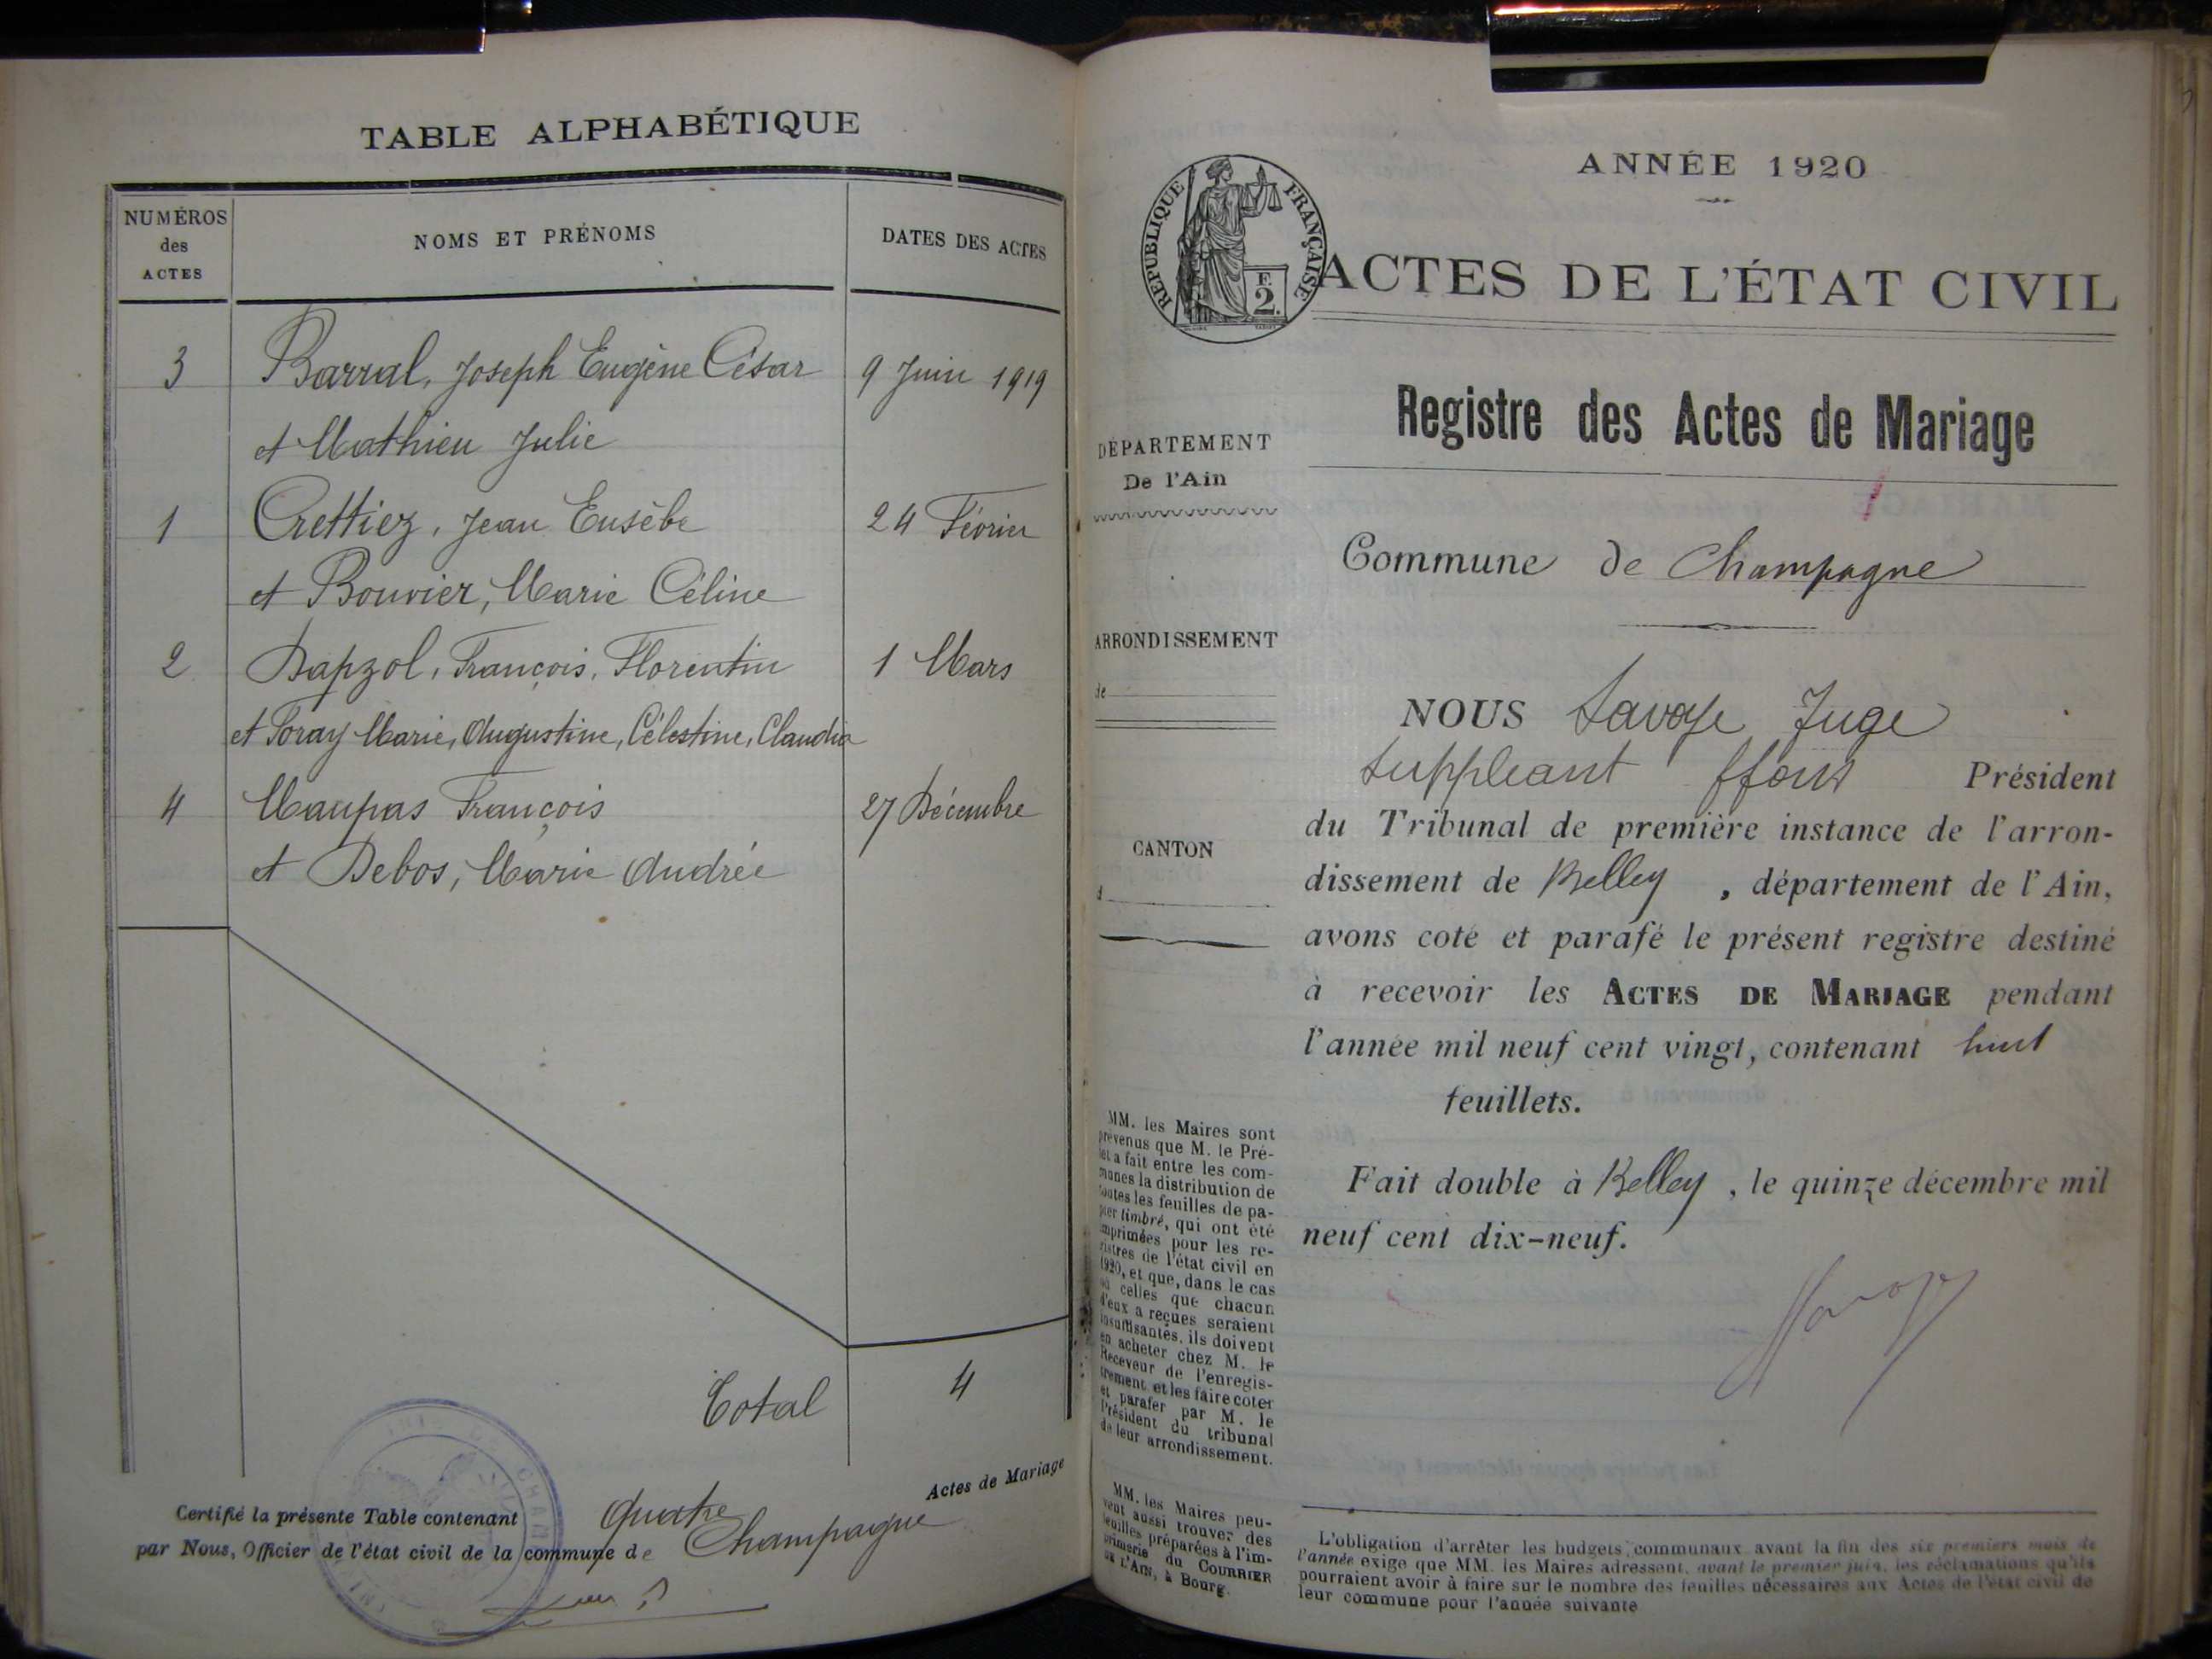 TABLE ALPHABÉTIQUE
NUMÉROS
des
ACTES
NOMS ET PRÉNOMS
DATES DES ACTES
3 Barral, Joseph Eugène César 9 Juin 1919
et Mathieu Julie
1 Crettiez, Jean Eusèbe 24 Février
et Bouvier, Marie Céline
2 Dapzol, François, Florentin 1 Mars
et Foray Marie, Augustine, Célestine, Claudia
4 Maupas François 27 Décembre
et Debos, Marie Andrée
Total 4
Certifié la présente Table contenant quatre Actes de Mariage
par Nous, Officier de l'état civil de la commune de Champagne
ANNÉE 1920
RÉPUBLIQUE FRANÇAISE
F.
2.
ACTES DE L'ÉTAT CIVIL
Registre des Actes de Mariage
DÉPARTEMENT
De l'Ain
Commune de Champagne
ARRONDISSEMENT
de
CANTON
d
NOUS Savoye Juge
suppleant ffons Président
du Tribunal de première instance de l'arron-
dissement de Belley, département de l'Ain,
avons coté et parafé le présent registre destiné
à recevoir les ACTES DE MARIAGE pendant
l'année mil neuf cent vingt, contenant huit
feuillets.
Fait double à Belley, le quinze décembre mil
neuf cent dix-neuf.
MM. les Maires sont
prévenus que M. le Pré-
fet a fait entre les com-
munes la distribution de
toutes les feuilles de pa-
pier timbré, qui ont été
imprimées pour les re-
gistres de l'état civil en
1920, et que, dans le cas
où celles que chacun
d'eux a reçues seraient
insuffisantes, ils doivent
en acheter chez M. le
Receveur de l'enregis-
trement et les faire coter
et parafer par M. le
Président du tribunal
de leur arrondissement.
MM. les Maires peu-
vent aussi trouver des
feuilles préparées à l'im-
primerie du COURRIER
DE L'AIN, à Bourg.
L'obligation d'arrêter les budgets communaux avant la fin des six premiers mois de
l'année exige que MM. les Maires adressent, avant le premier juin, les réclamations qu'ils
pourraient avoir à faire sur le nombre des feuilles nécessaires aux Actes de l'état civil de
leur commune pour l'année suivante